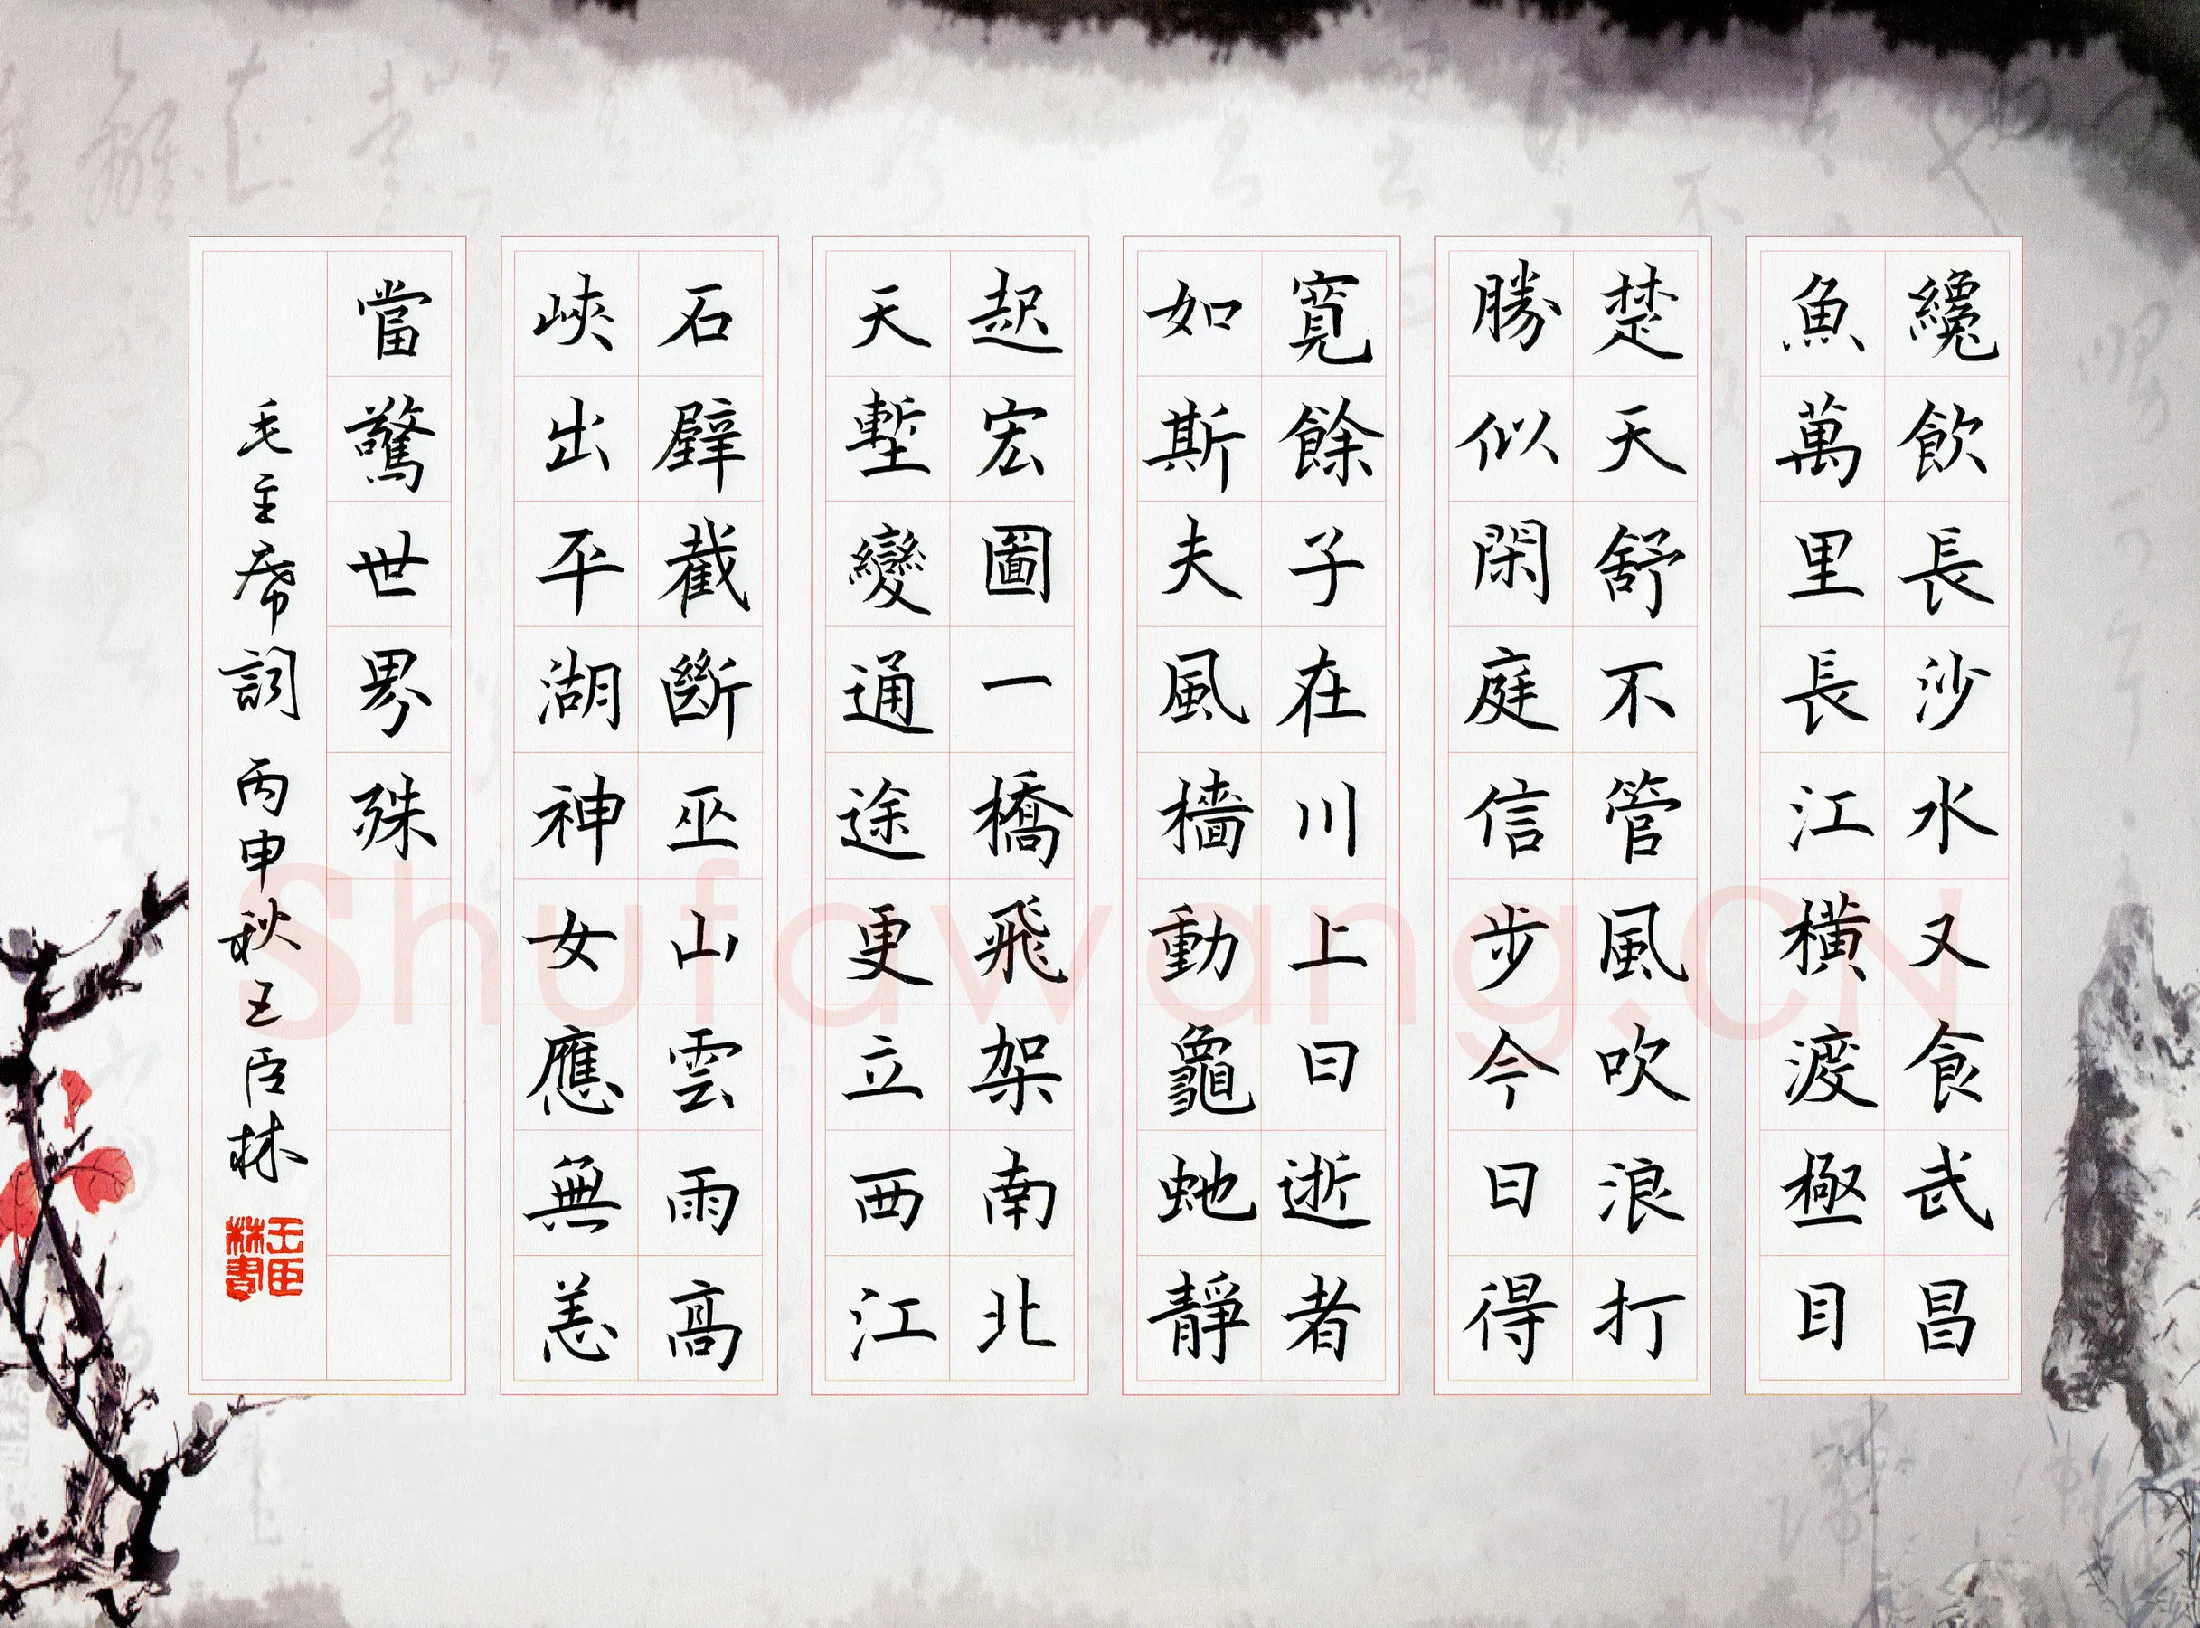 纔飲長沙水又食武昌
魚萬里長江橫渡極目
楚天舒不管風吹浪打
勝似閑庭信步今日得
寬餘子在川上曰逝者
如斯夫風檣動龜蛇靜
起宏圖一橋飛架南北
天塹變通途更立西江
石壁截斷巫山雲雨高
峽出平湖神女應無恙
當驚世界殊
毛主席詞 丙申秋王臣林
王臣林書
Shufawang.CN